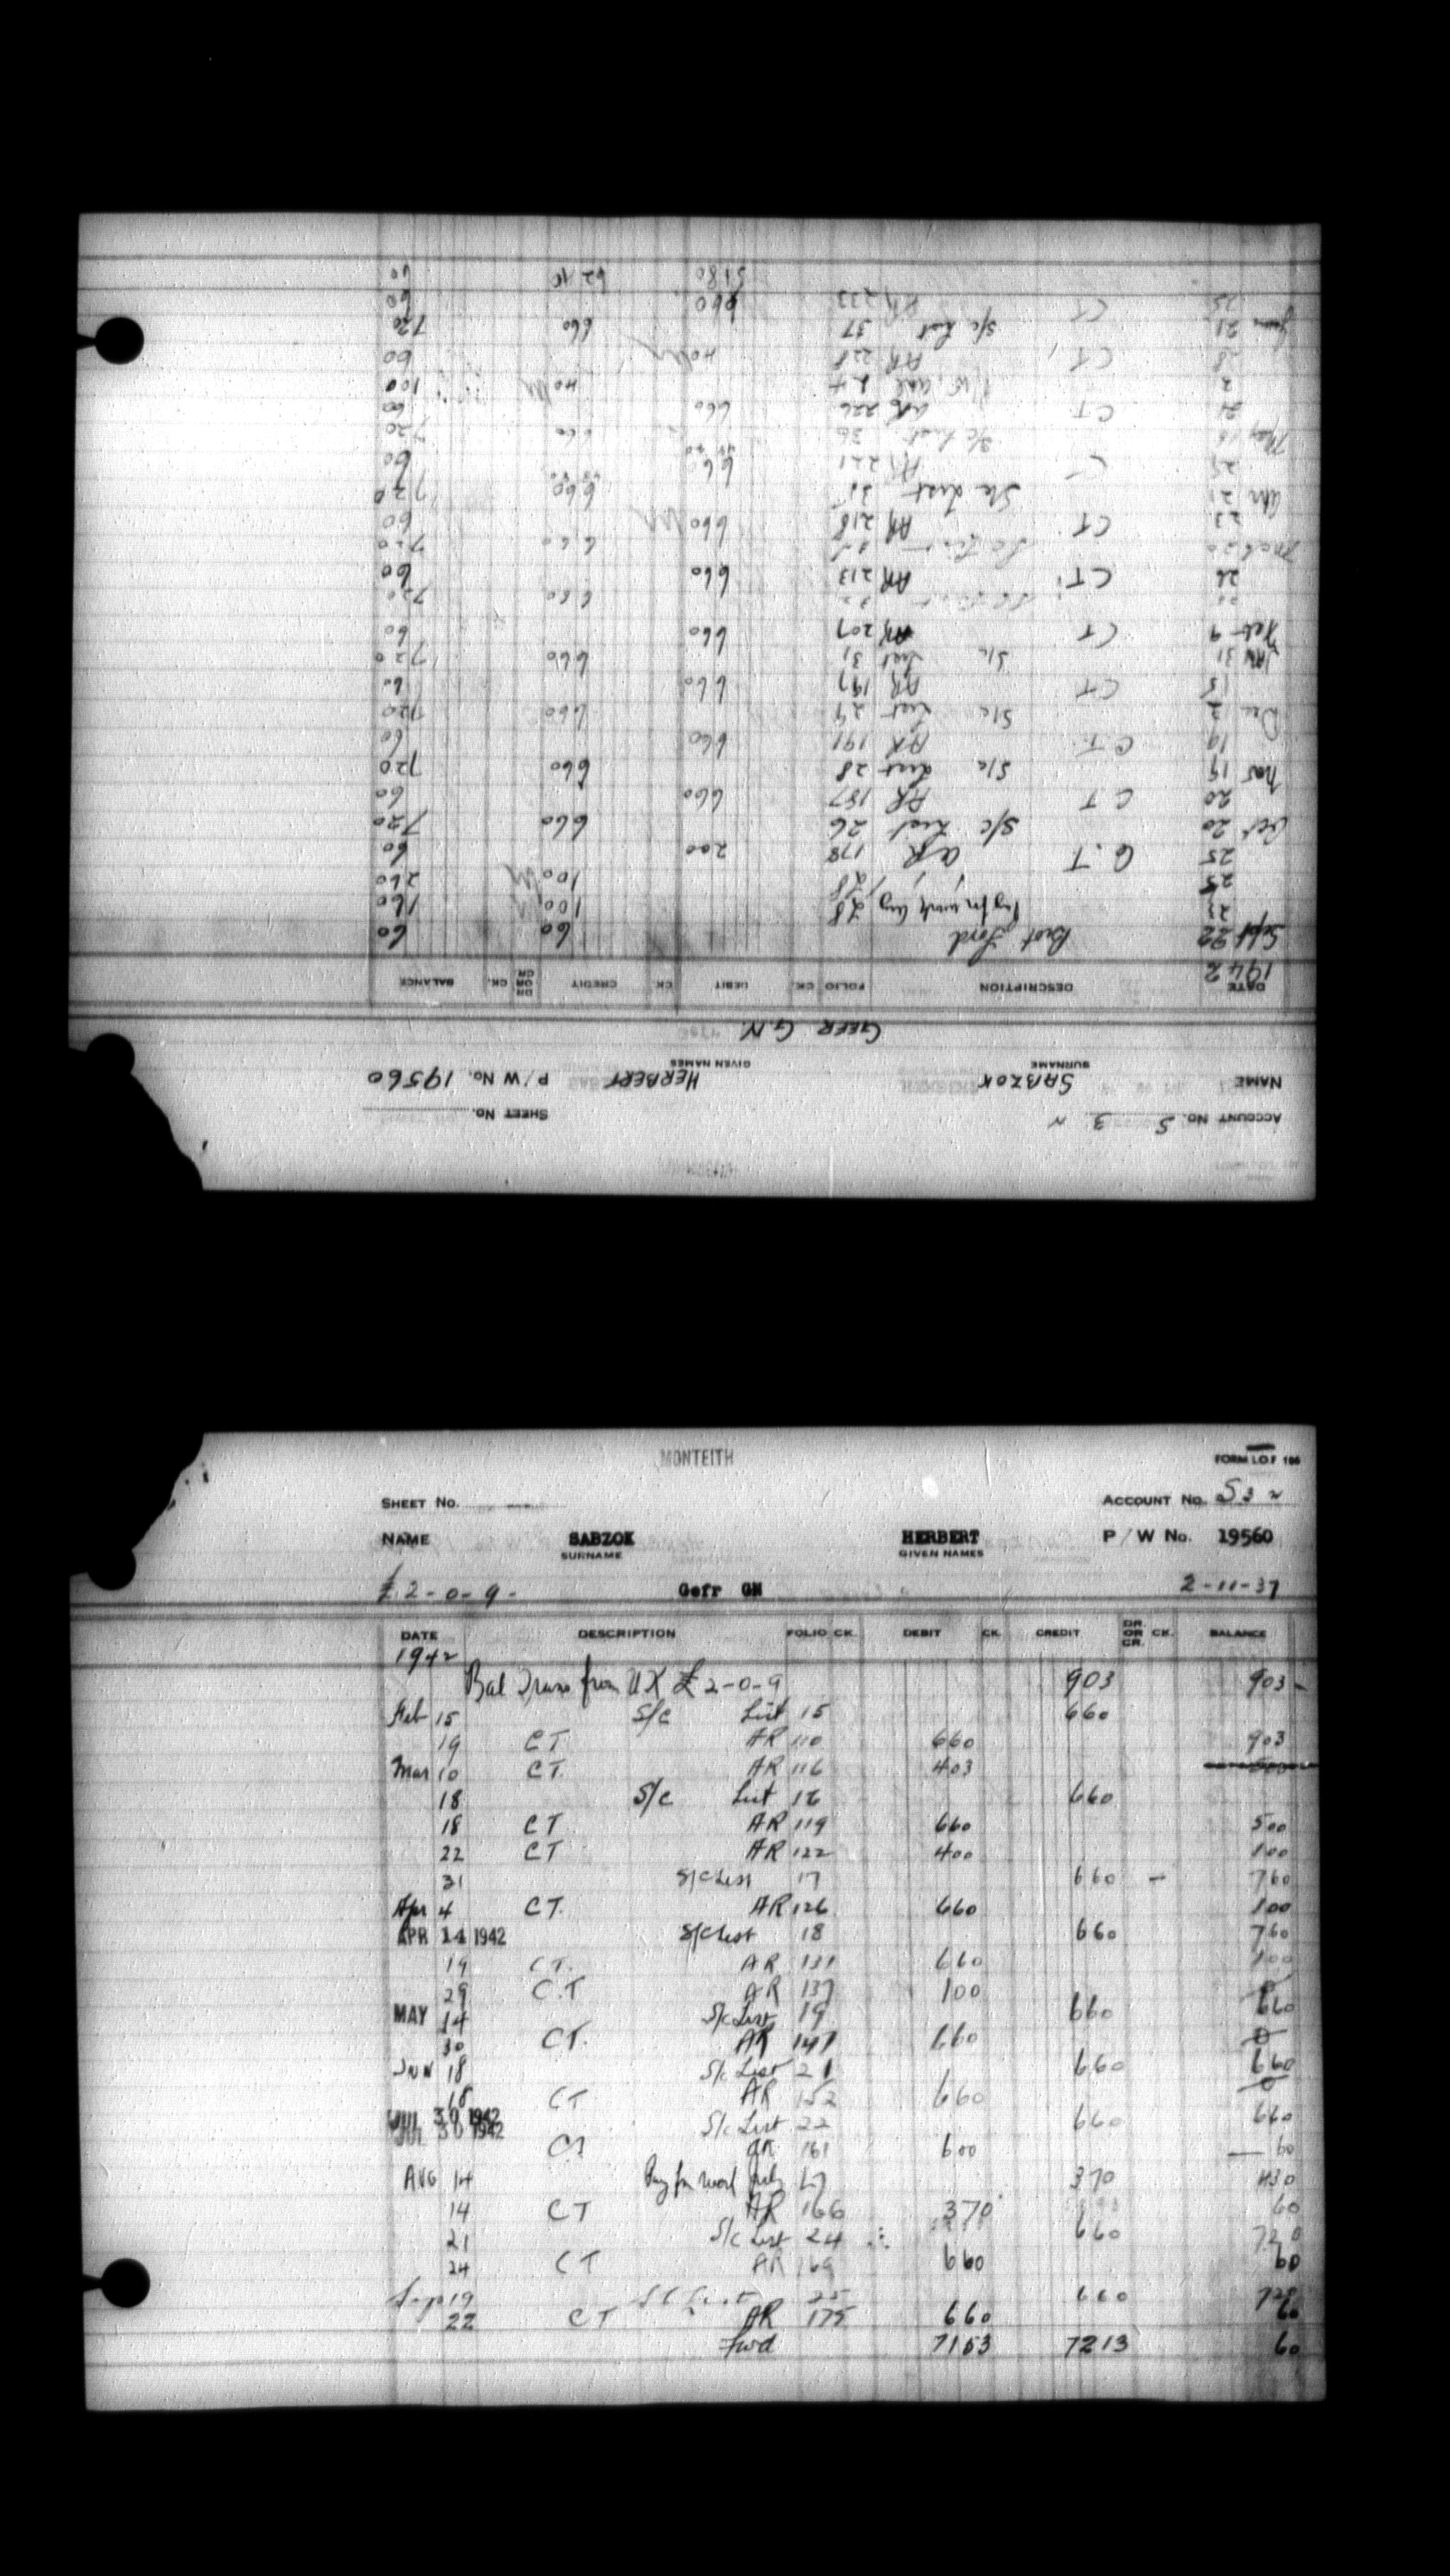 MONTEITH
FORM I.O.F 106
SHEET No. ACCOUNT No. S 3 2
NAME SABZOK HERBERT P/W No. 19560
SURNAME GIVEN NAMES
£ 2-0-9- Gefr GN 2-11-37
DATE DESCRIPTION FOLIO CK. DEBIT CK. CREDIT DR. OR CR. CK. BALANCE
1942
Bal Trans from UX £ 2-0-9 903 903
Feb 15 S/c List 15 660
19 CT AR 110 660 903
Mar 10 CT. AR 116 403
18 S/c List 16 660
18 CT AR 119 660 500
22 CT AR 122 400 100
31 S/c List 17 660 760
Apr 4 CT. AR 126 660 100
APR 14 1942 S/c List 18 660 760
19 CT. AR 131 660 100
29 C.T AR 137 100 0
MAY 14 S/c List 19 660 660
30 CT. AR 147 660 0
JUN 18 S/c List 21 660 660
18 CT AR 152 660 0
JUL 30 1942 S/c List 22 660 660
JUL 30 1942 CT AR 161 600 60
AUG 14 Pay for work July 27 370 430
14 CT AR 166 370 60
21 S/c List 24 660 720
24 CT AR 169 660 60
Sep 19 S/c List 25 660 720
22 CT AR 175 660 60
Fwd 7153 7213 60
ACCOUNT No. S 3 2
SHEET No.
NAME SABZOK HERBERT P/W No. 19560
SURNAME GIVEN NAMES
GEFR G.N.
DATE DESCRIPTION FOLIO CK. DEBIT CK. CREDIT DR OR CR CK. BALANCE
1942
Sept 22 Brot Ford 60 60
23 Pay for work Aug 28 100 160
25 28 100 260
25 C.T AR 178 200 60
Oct 20 S/c List 26 660 720
20 CT AR 187 660 60
Nov 19 S/c List 28 660 720
19 C.T. AR 191 660 60
Dec 2 S/c List 29 660 720
15 CT AR 197 660 60
JAN 31 S/c List 31 660 720
Feb 9 CT AR 207 660 60
660 720
26 CT. AR 213 660 60
Mch 20 660 720
23 CT. AR 218 660 60
Apr 21 S/c List 660 720
AR 221 660 60
May 18 S/c List 36 660 720
21 CT. AR 226 660 60
2 40 100
28 CT AR 228 40 60
June 21 S/c List 37 660 720
25 CT AR 233 660 60
5180 60